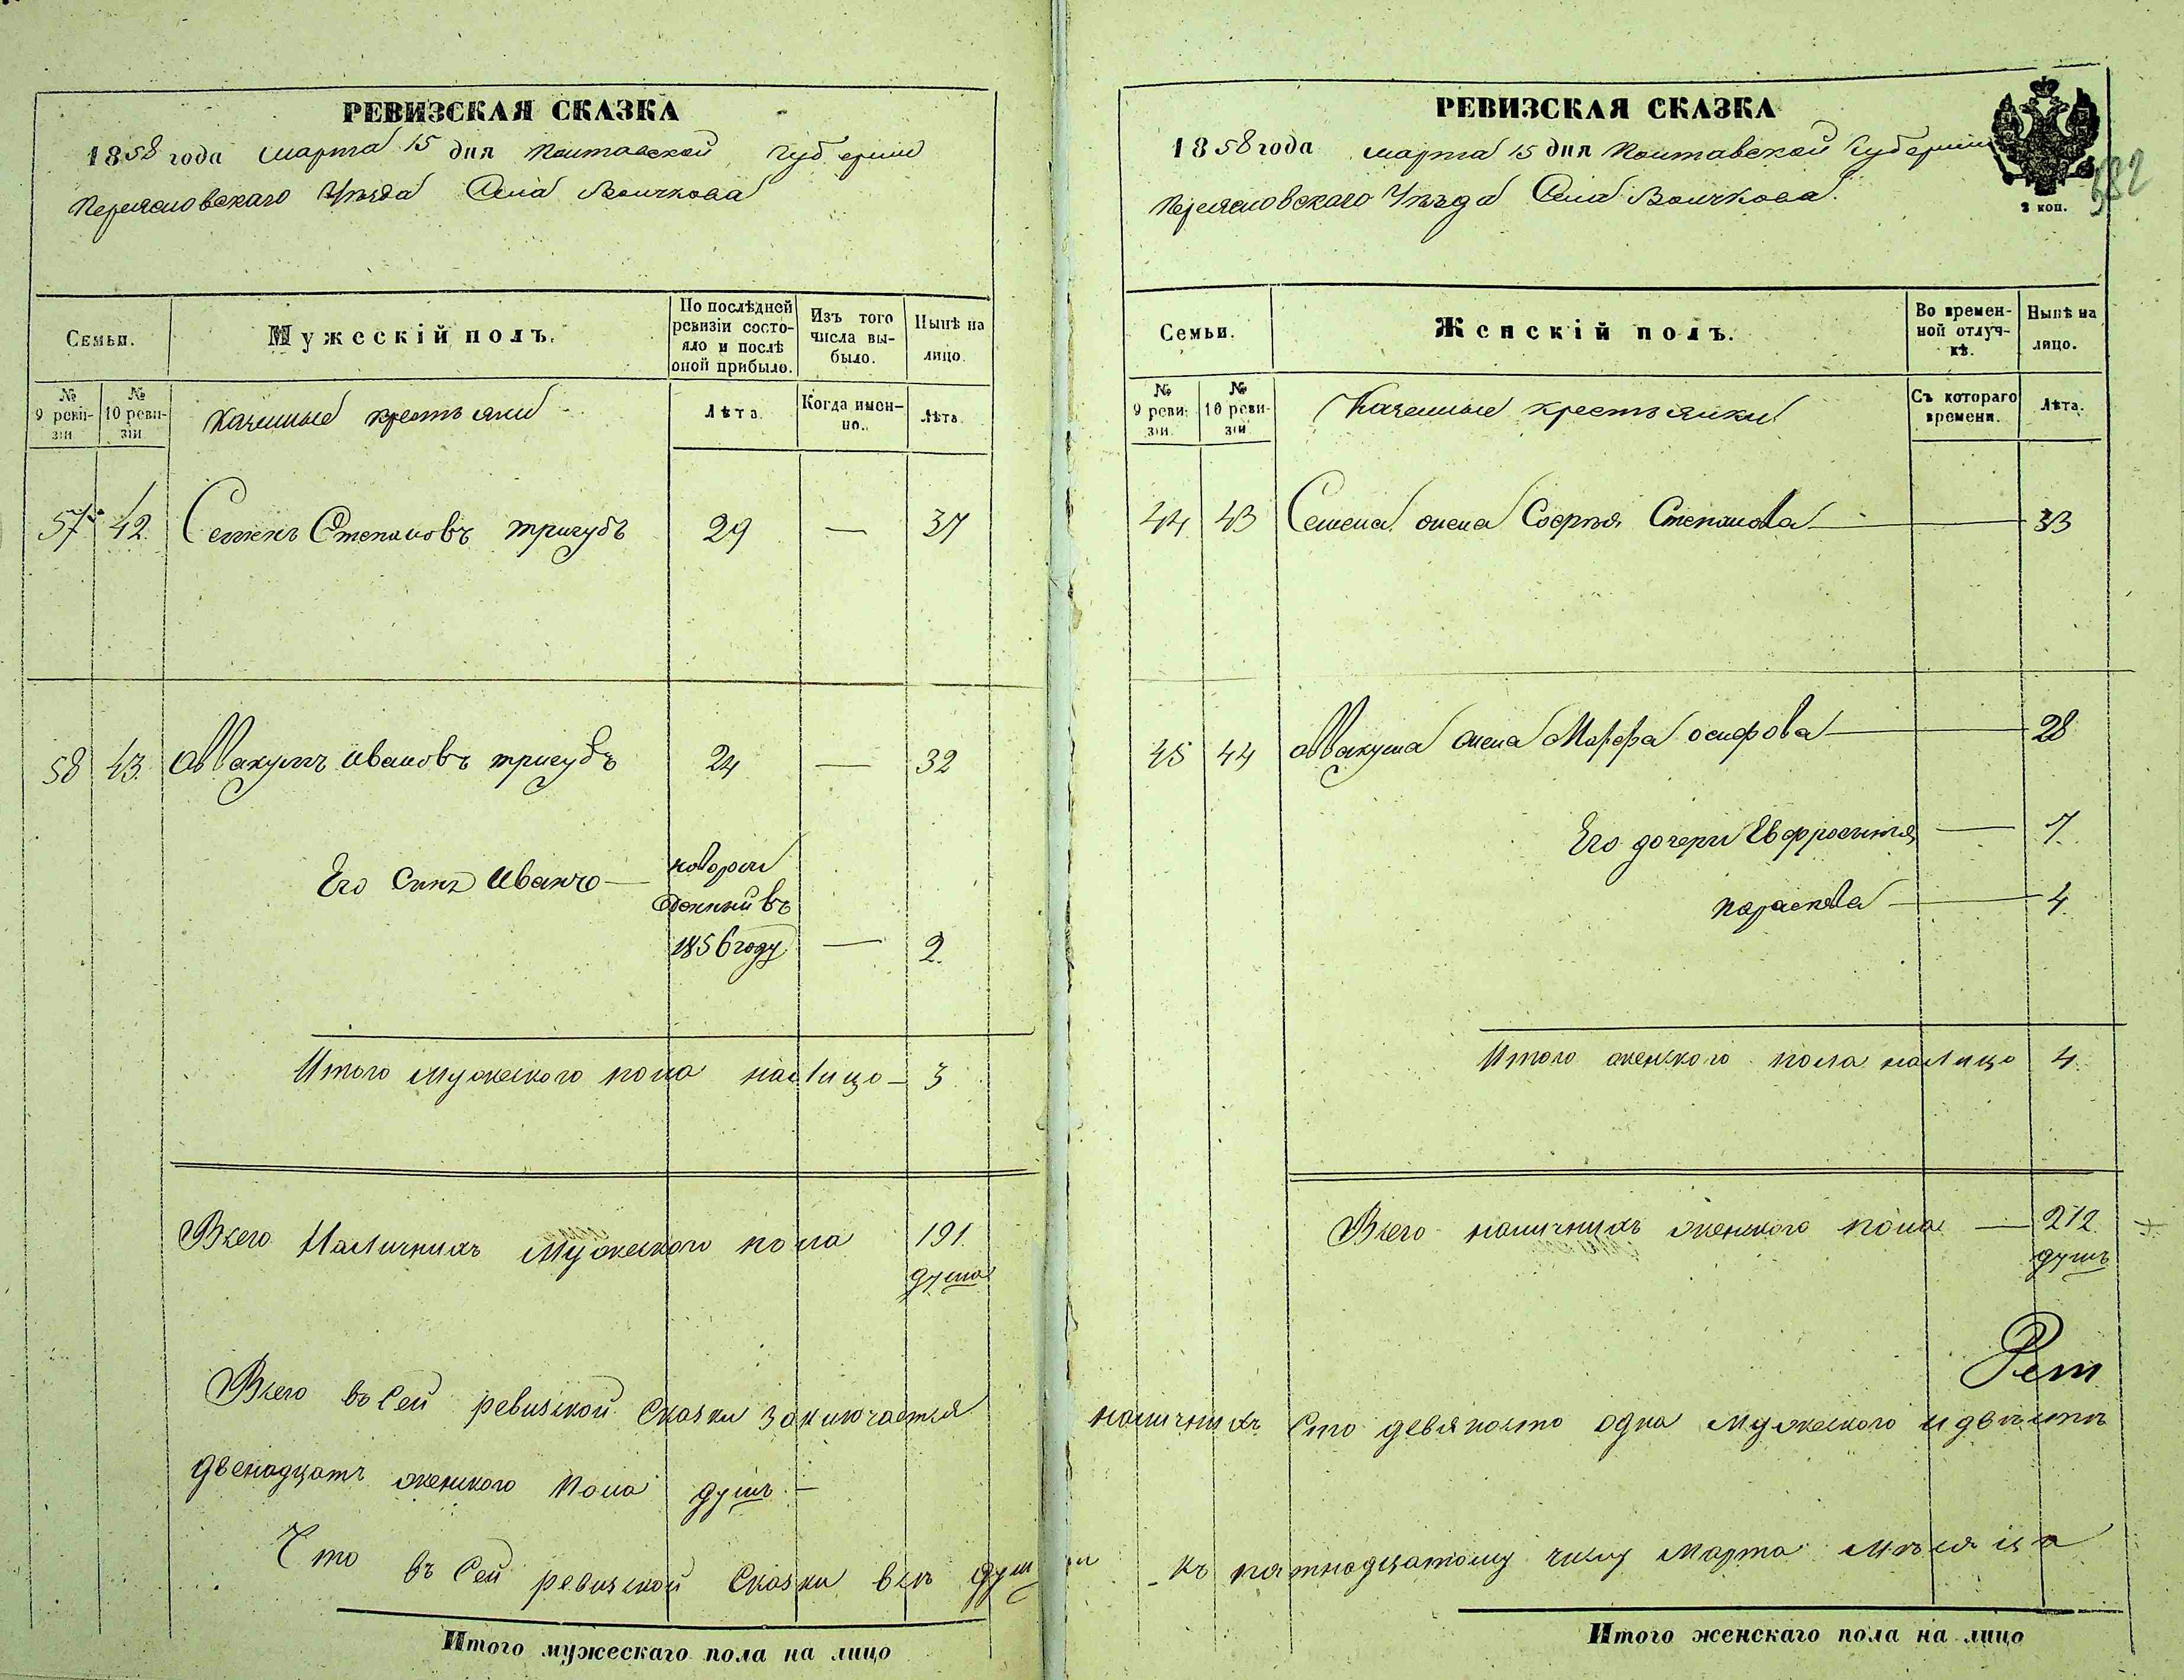 РЕВИЗСКАЯ СКАЗКА
1858 года марта 15 дня Полтавской губернии
Переясловскаго Уѣзда Села Волчкова
Семьи.
Мужескій полъ.
По послѣдней ревизіи состояло и послѣ оной прибыло.
Изъ того числа выбыло.
Нынѣ на лицо.
№ 9 ревизіи
№ 10 ревизіи
Казенные крестьяни
Лѣта.
Когда именно.
Лѣта.
57 42 Семенъ Степановъ тригубъ 29 — 37
58 43 Аввакумъ ивановъ тригубъ 24 — 32
Его Синъ иванъ — новорож
денний въ
1856 году — 2
Итого мужеского пола налицо — 3
Всего Наличнихъ мужеского пола 191
душа
Всего въ Сей ревизской Сказки заключается
двенадцать женского пола душъ —
Что въ Сей ревизской Сказки всѣ души
Итого мужескаго пола на лицо
РЕВИЗСКАЯ СКАЗКА
1858 года марта 15 дня Полтавской Губернии
Переясловскаго Уѣзда Села Волчкова.
2 коп.
Семьи.
Женскій полъ.
Во временной отлучкѣ.
Нынѣ на лицо.
№ 9 ревизіи.
№ 10 ревизіи
Казенные крестьянки
Съ котораго времени.
Лѣта.
44 43 Семена жена Софья Степанова — 33
45 44 Аввакума жена Марфа осифова — 28
Его дочери Евфросинія — 7
параскева — 4
Итого женского пола налицо 4
Всего наличнихъ женского пола — 212
душъ
наличнихъ Сто девяносто одна мужеского и двѣсти
къ пятнадцатому числу Марта мѣсяца
Итого женскаго пола на лицо